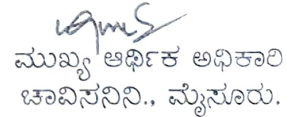 ಮುಖ್ಯ ಆರ್ಥಿಕ ಅಧಿಕಾರಿ
ಚಾವಿಸನಿನಿ., ಮೈಸೂರು.